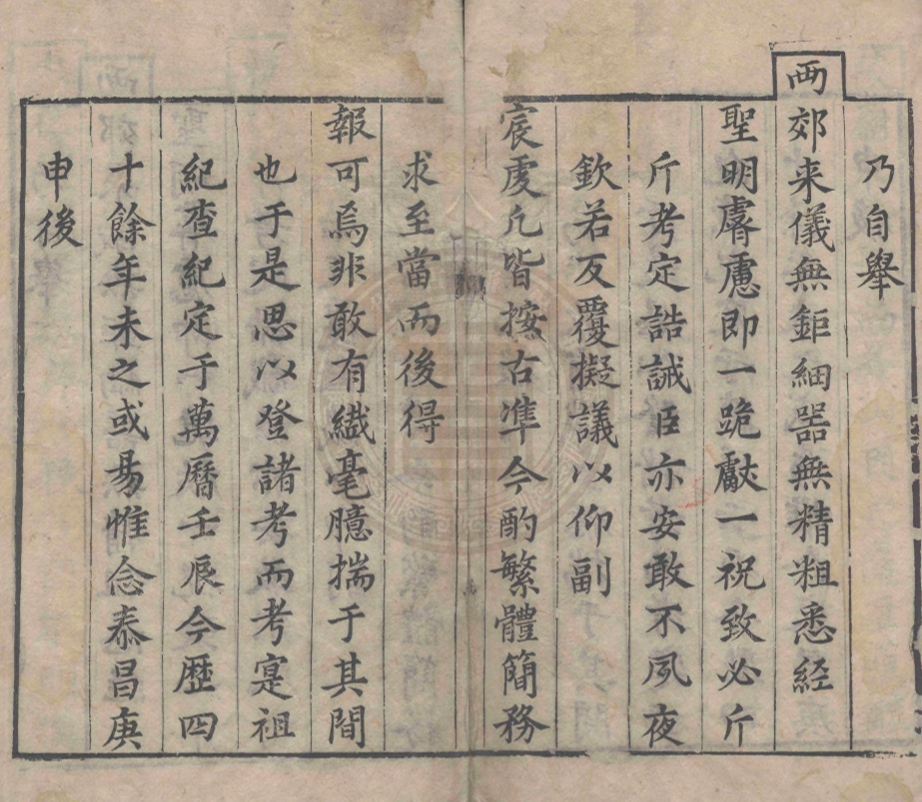 乃自舉
两郊来儀無鉅細器無精粗悉經
聖明睿慮即一跪獻一祝致必斤
斤考定誥誡臣亦安敢不夙夜
欽若反覆擬議以仰副
宸虔凢皆按古準今酌繁體簡務
求至當而後得
報可焉非敢有纎毫臆揣于其間
也于是思以登諸考而考寔祖
紀查紀定于萬曆壬辰今歴四
十餘年未之或易惟念泰昌庚
申後